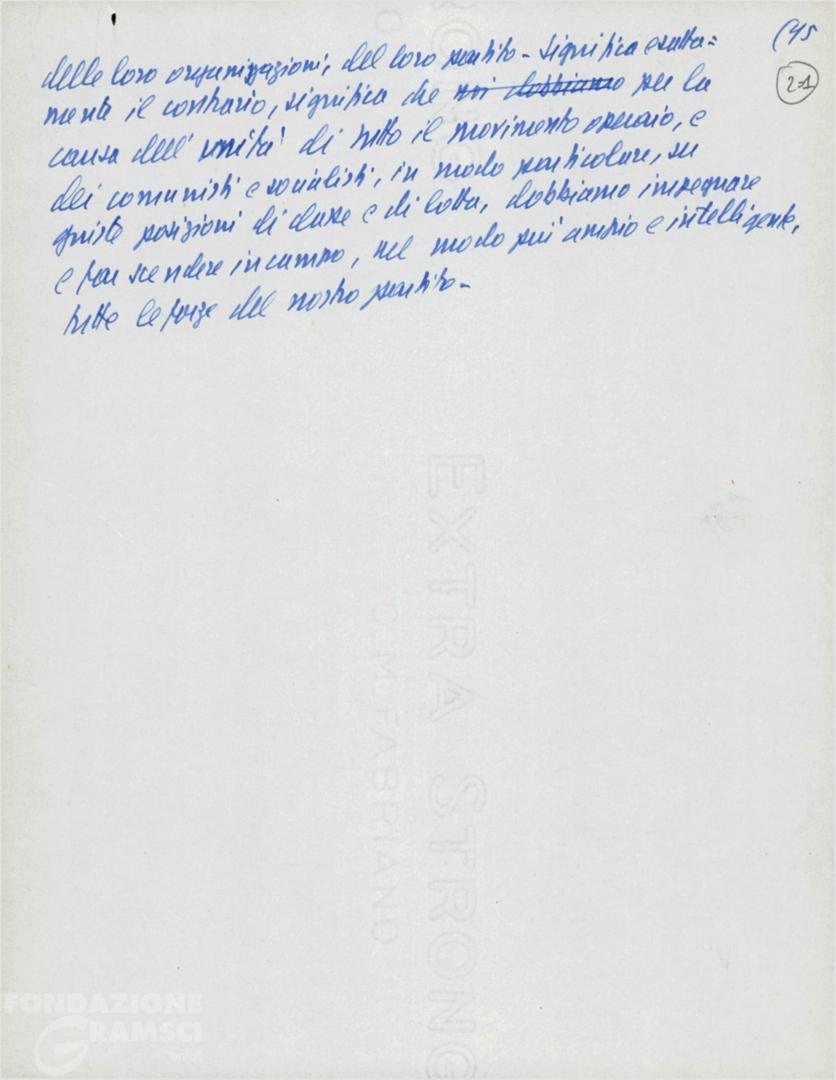 (45
21
delle loro organizzazioni, del loro partito - significa esatta=
mente il contrario, significa che noi dobbiamo per la
causa dell'unità di tutto il movimento operaio, e
dei comunisti e socialisti, in modo particolare, su
giuste posizioni di classe e di lotta, dobbiamo impegnare
e far scendere in campo, nel modo più ampio e intelligente,
tutte le forze del nostro partito -
EXTRA STRONG
C. M. FABRIANO
FONDAZIONE
GRAMSCI